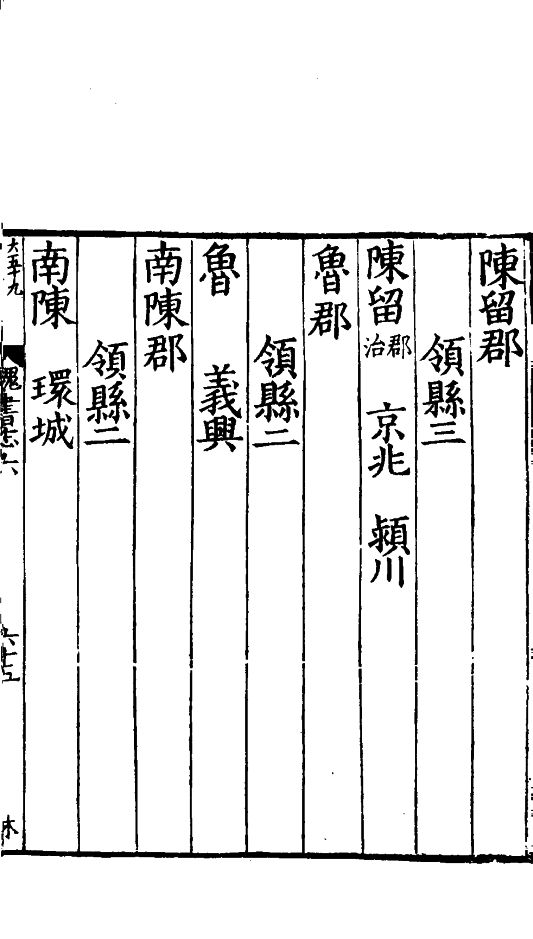 陳留郡
領縣三
陳留 郡治 京兆 潁川
魯郡
領縣二
魯 義興
南陳郡
領縣二
南陳 環城
魏書志六